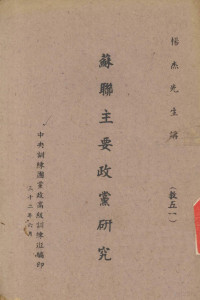 楊杰先生講
(教五一)
蘇聯主要政黨研究
中央訓練團黨政高級訓練班編印
三十二年六月